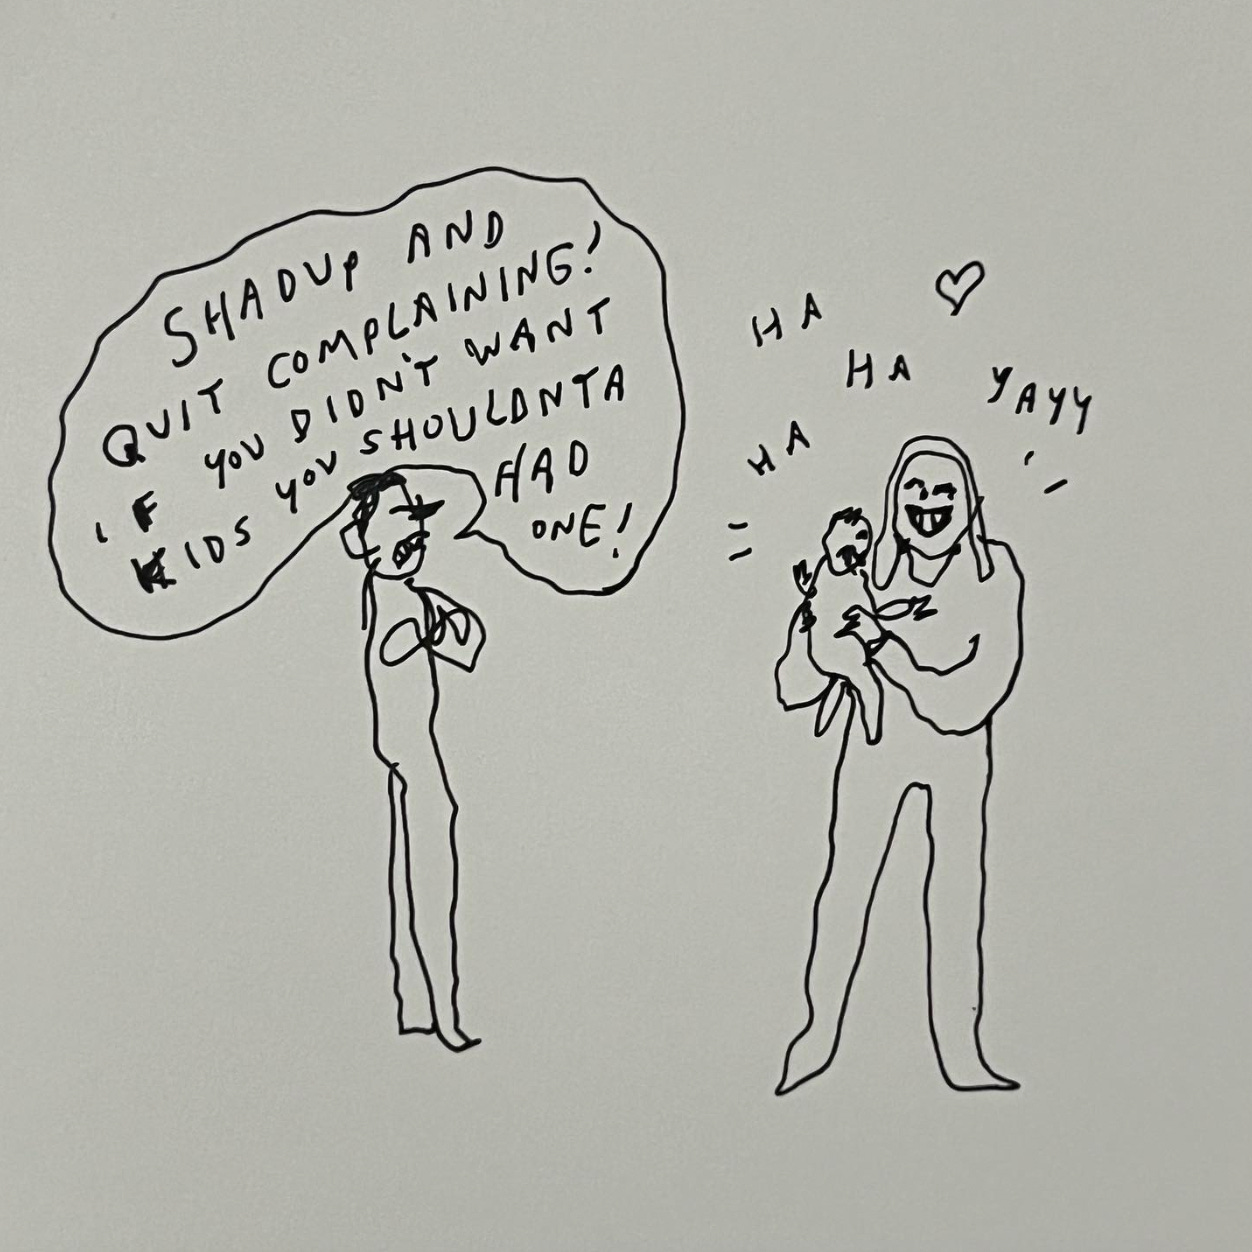 SHADUP AND
QUIT COMPLAINING!
IF YOU DIDN'T WANT
KIDS YOU SHOULDNTA
HAD
ONE!
HA
HA
YAYY
HA